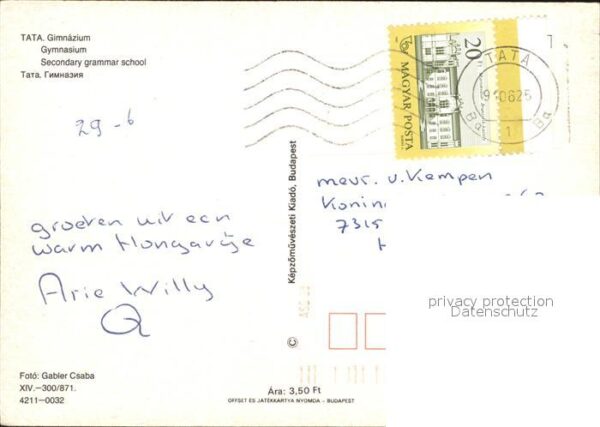 TATA. Gimnázium
Gymnasium
Secondary grammar school
Тата. Гимназия
29-6
groeten uit een
warm Hongarije
Arie Willy
Képzőművészeti Kiadó, Budapest
20 Ft
MAGYAR POSTA
TATA
1
Ba
mevr. v. Kempen
Konin
7315
privacy protection
Datenschutz
Fotó: Gabler Csaba
XIV.—300/871.
4211—0032
Ára: 3,50 Ft
OFFSET ÉS JÁTÉKKÁRTYA NYOMDA - BUDAPEST